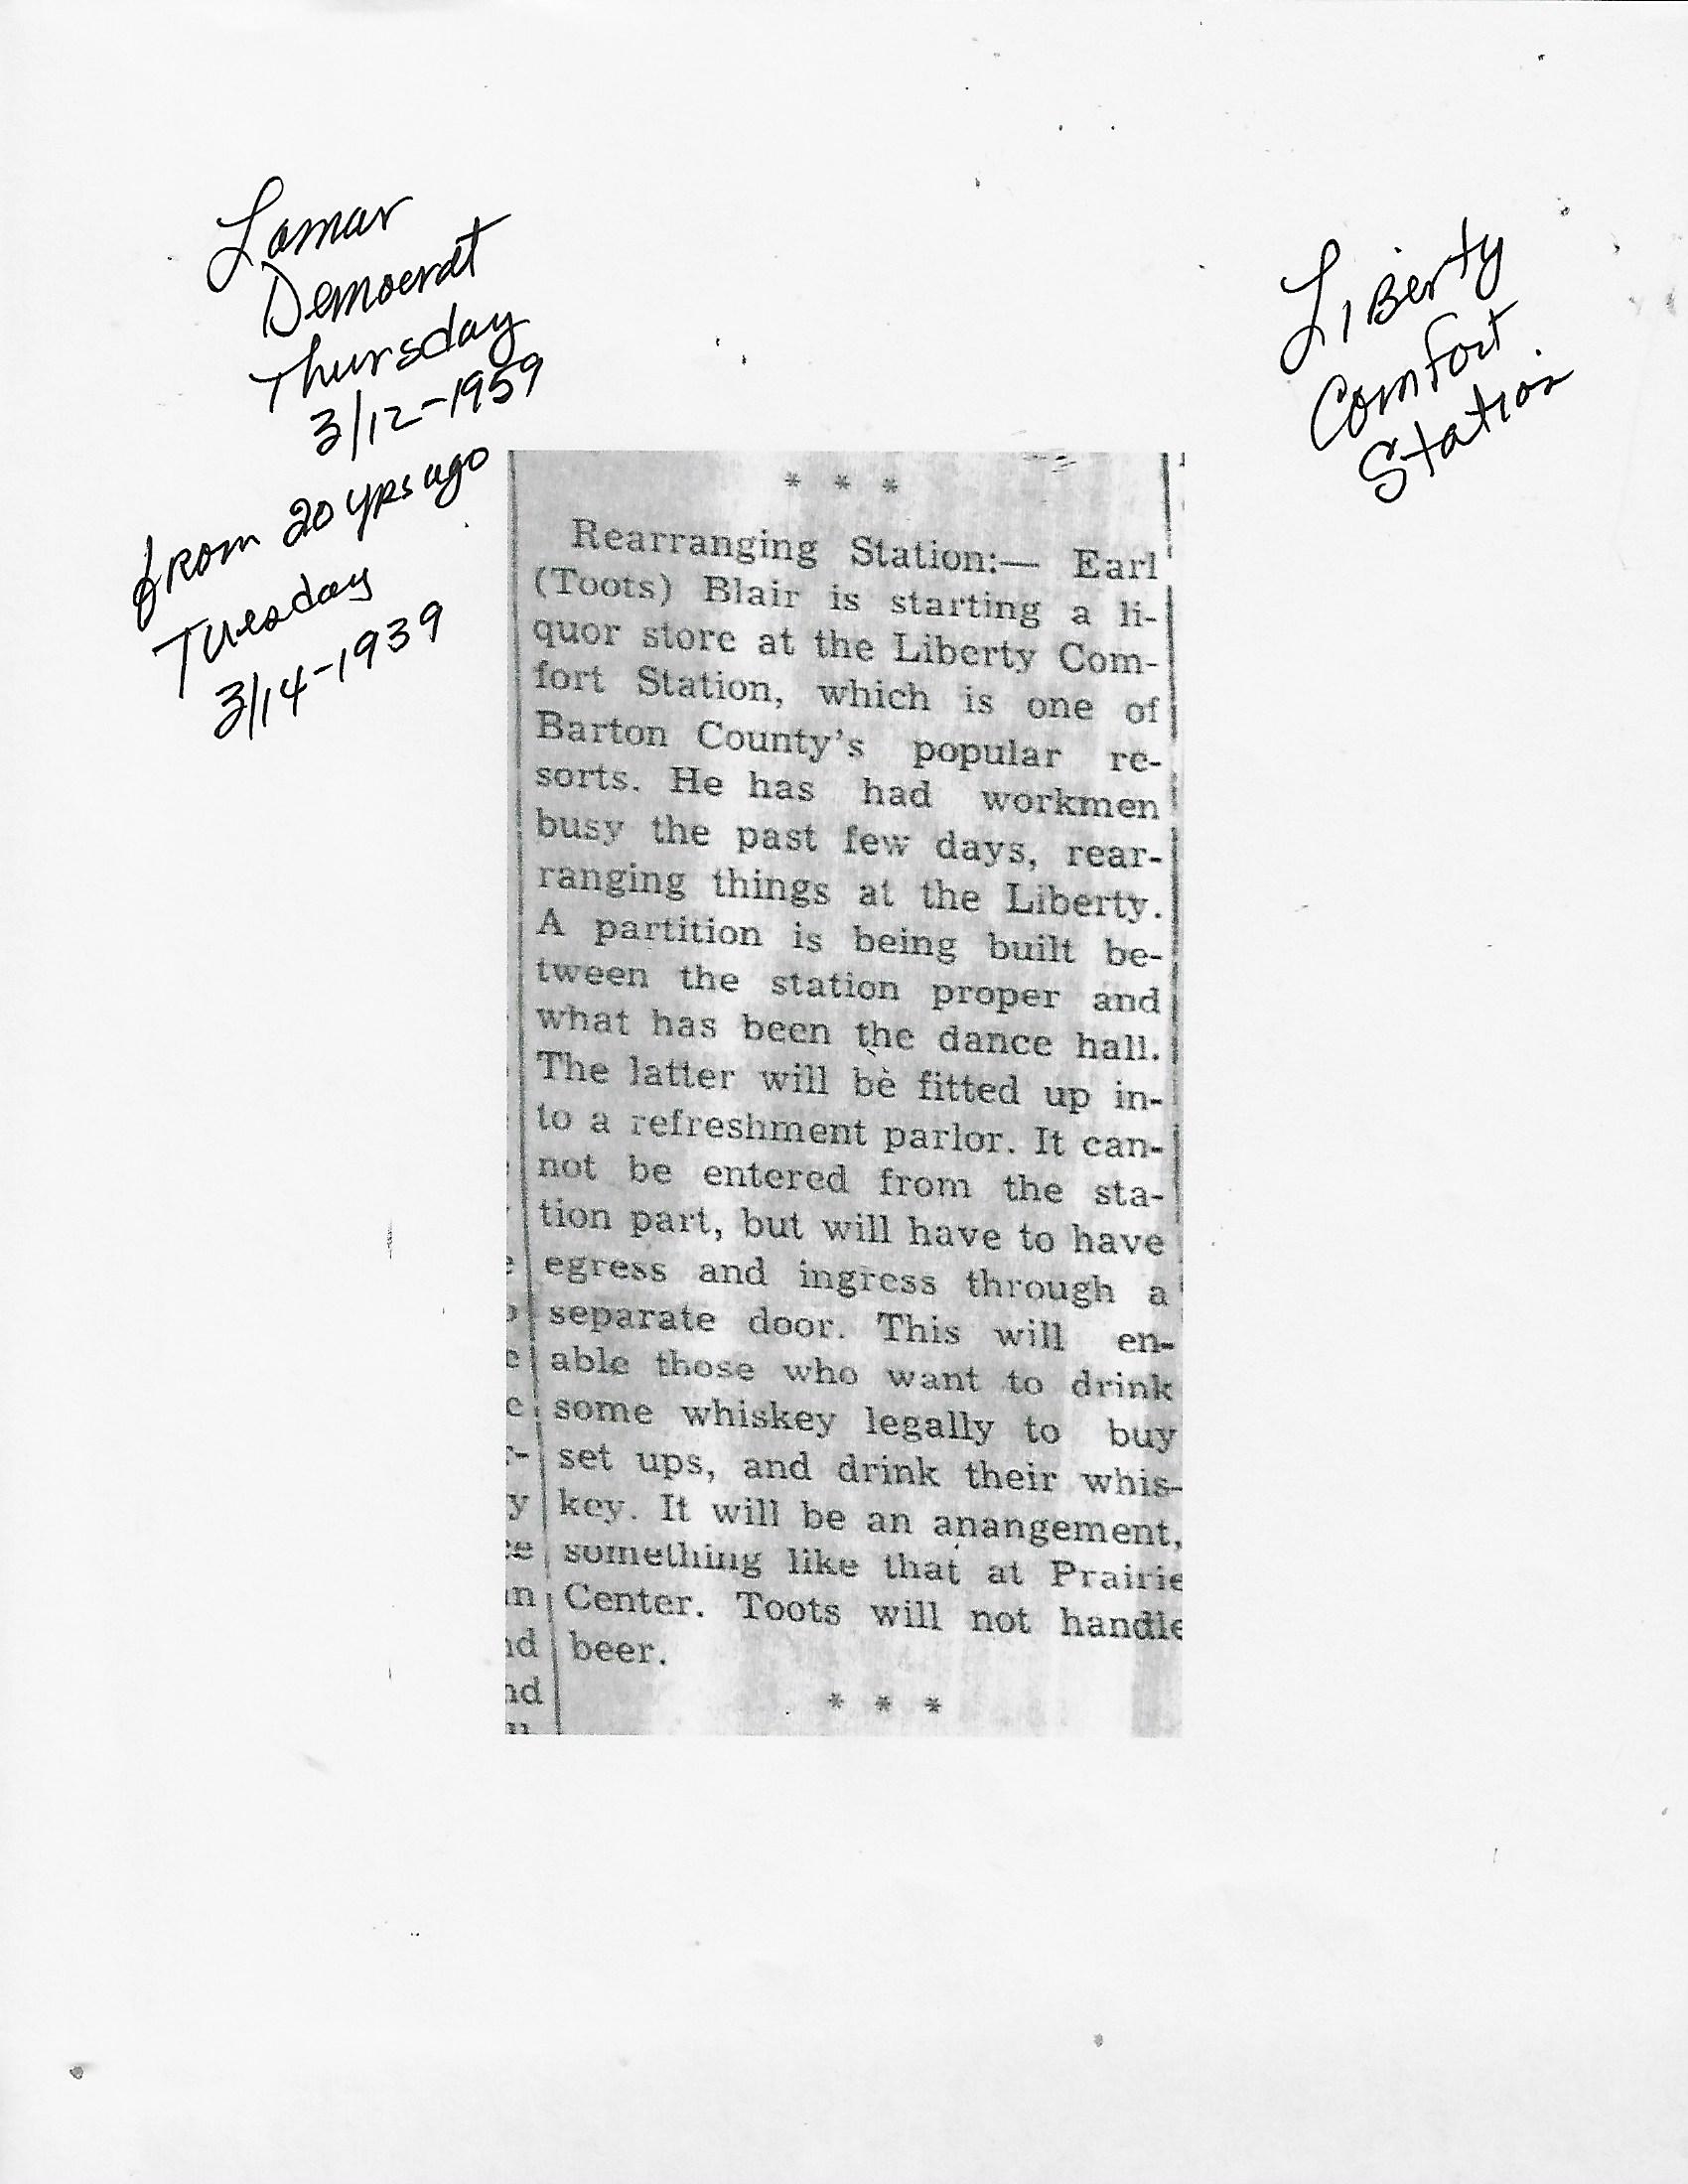 Lamar
Democrat
Thursday
3/12-1959
from 20 yrs ago
Tuesday
3/14-1939
Liberty
Comfort
Station
* * *
Rearranging Station:— Earl
(Toots) Blair is starting a li-
quor store at the Liberty Com-
fort Station, which is one of
Barton County's popular re-
sorts. He has had workmen
busy the past few days, rear-
ranging things at the Liberty.
A partition is being built be-
tween the station proper and
what has been the dance hall.
The latter will be fitted up in-
to a refreshment parlor. It can-
not be entered from the sta-
tion part, but will have to have
egress and ingress through a
separate door. This will en-
able those who want to drink
some whiskey legally to buy
set ups, and drink their whis-
key. It will be an anangement,
something like that at Prairie
Center. Toots will not handle
beer.
* * *